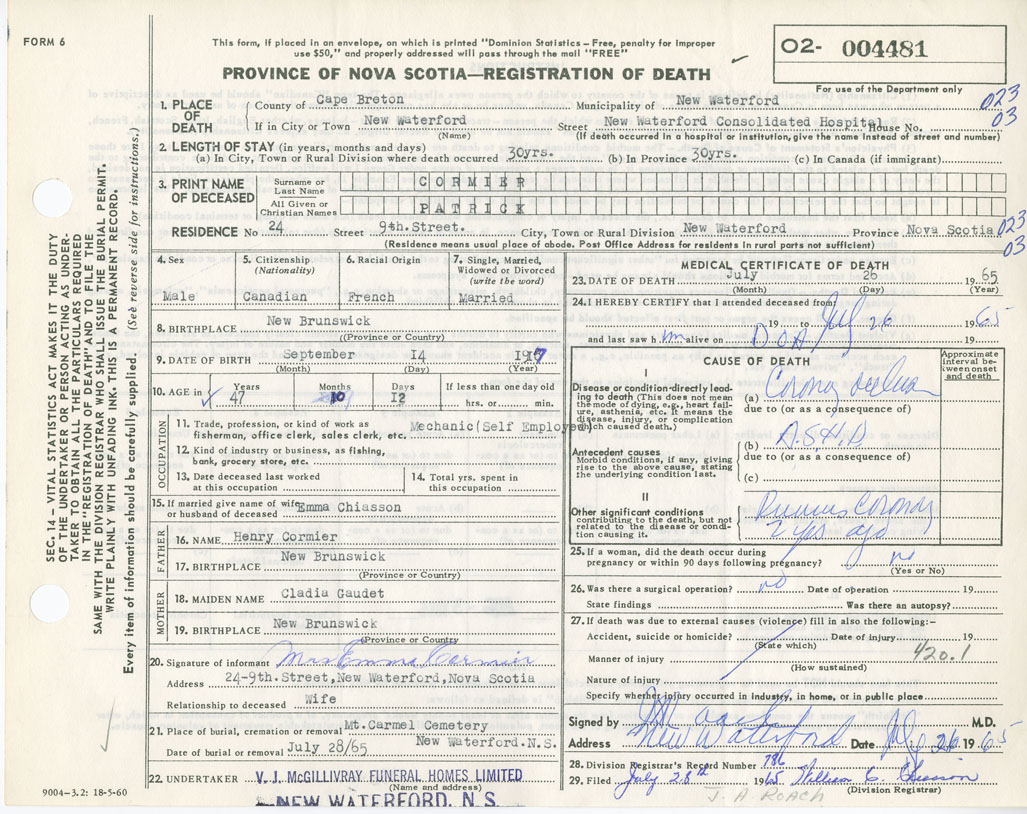 FORM 6
This form, if placed in an envelope, on which is printed "Dominion Statistics – Free, penalty for improper
use $50," and properly addressed will pass through the mail "FREE"
O2- 004481
PROVINCE OF NOVA SCOTIA—REGISTRATION OF DEATH
For use of the Department only
023
03
1. PLACE OF DEATH
County of Cape Breton Municipality of New Waterford
If in City or Town New Waterford Street New Waterford Consolidated Hospital House No.
(Name) (If death occurred in a hospital or institution, give the name instead of street and number)
2. LENGTH OF STAY (in years, months and days)
(a) In City, Town or Rural Division where death occurred 30yrs. (b) In Province 30yrs. (c) In Canada (if immigrant)
3. PRINT NAME OF DECEASED
Surname or Last Name CORMIER
All Given or Christian Names PATRICK
RESIDENCE No 24 Street 9th.Street. City, Town or Rural Division New Waterford Province Nova Scotia
023
03
(Residence means usual place of abode. Post Office Address for residents in rural parts not sufficient)
4. Sex
Male
5. Citizenship
(Nationality)
Canadian
6. Racial Origin
French
7. Single, Married,
Widowed or Divorced
(write the word)
Married
8. BIRTHPLACE New Brunswick
(Province or Country)
9. DATE OF BIRTH September 14 1917
(Month) (Day) (Year)
10. AGE in Years Months Days If less than one day old
47 10 12 hrs. or min.
OCCUPATION
11. Trade, profession, or kind of work as
fisherman, office clerk, sales clerk, etc. Mechanic(Self Employed)
12. Kind of industry or business, as fishing,
bank, grocery store, etc.
13. Date deceased last worked
at this occupation
14. Total yrs. spent in
this occupation
15. If married give name of wife
or husband of deceased Emma Chiasson
FATHER
16. NAME Henry Cormier
17. BIRTHPLACE New Brunswick
(Province or Country)
MOTHER
18. MAIDEN NAME Cladia Gaudet
19. BIRTHPLACE New Brunswick
(Province or Country
20. Signature of informant Mrs Emma Cormier
Address 24-9th.Street,New Waterford,Nova Scotia
Relationship to deceased Wife
21. Place of burial, cremation or removal Mt.Carmel Cemetery
New Waterford.N.S.
Date of burial or removal July 28/65
22. UNDERTAKER V. J. McGILLIVRAY FUNERAL HOMES LIMITED
(Name and address)
NEW WATERFORD, N. S.
9004-3.2: 18-5-60
MEDICAL CERTIFICATE OF DEATH
23. DATE OF DEATH July 26 1965
(Month) (Day) (Year)
24. I HEREBY CERTIFY that I attended deceased from
19 to July 26 1965
and last saw him alive on D.O.A. 19
CAUSE OF DEATH
Approximate
interval be-
tween onset
and death
I
Disease or condition directly lead-
ing to death (This does not mean
the mode of dying, e.g., heart fail-
ure, asthenia, etc. It means the
disease, injury, or complication
which caused death.)
(a) Coronary occlusion
due to (or as a consequence of)
(b) A.S.H.D
due to (or as a consequence of)
(c)
Antecedent causes
Morbid conditions, if any, giving
rise to the above cause, stating
the underlying condition last.
II
Other significant conditions
contributing to the death, but not
related to the disease or condi-
tion causing it.
Previous Coronary
2 yrs ago
25. If a woman, did the death occur during
pregnancy or within 90 days following pregnancy? no
(Yes or No)
26. Was there a surgical operation? no Date of operation 19
State findings Was there an autopsy?
27. If death was due to external causes (violence) fill in also the following:–
Accident, suicide or homicide? Date of injury 19
(State which)
420.1
Manner of injury
(How sustained)
Nature of injury
Specify whether injury occurred in industry, in home, or in public place
Signed by M.D.
Address New Waterford Date July 26 1965
28. Division Registrar's Record Number 786
29. Filed July 28th 1965 William C. Chiasson
(Division Registrar)
J. A. ROACH
SEC. 14 – VITAL STATISTICS ACT MAKES IT THE DUTY
OF THE UNDERTAKER OR PERSON ACTING AS UNDER-
TAKER TO OBTAIN ALL THE PARTICULARS REQUIRED
IN THE "REGISTRATION OF DEATH" AND TO FILE THE
SAME WITH THE DIVISION REGISTRAR WHO SHALL ISSUE THE BURIAL PERMIT.
WRITE PLAINLY WITH UNFADING INK. THIS IS A PERMANENT RECORD.
Every item of information should be carefully supplied. (See reverse side for instructions.)